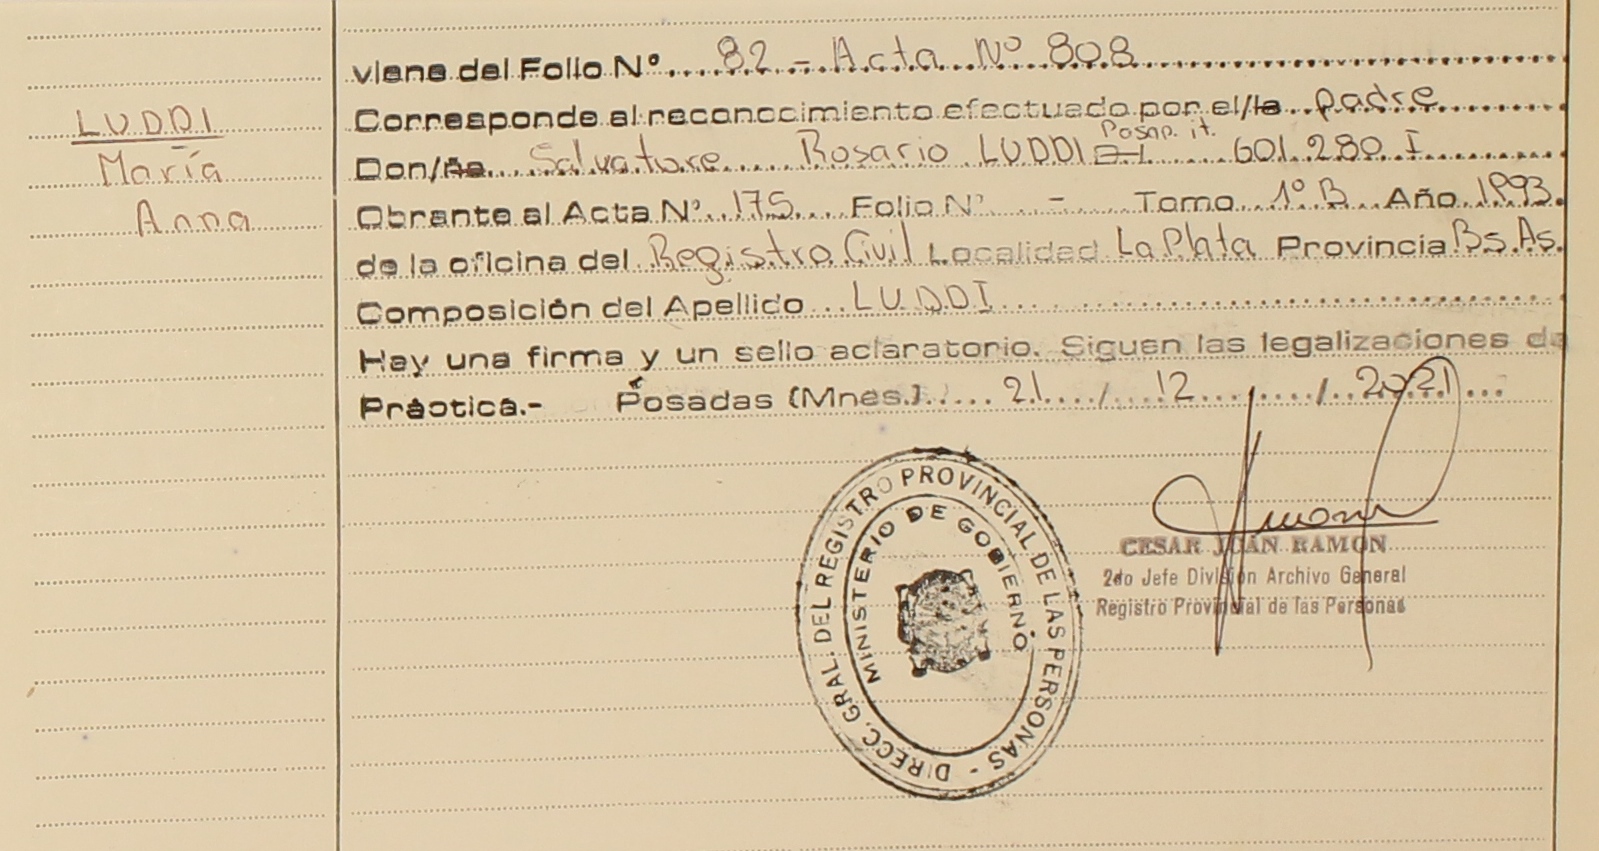 LUDDI
María
Anna
viene del Folio Nº 82 - Acta Nº 808
Corresponde al reconocimiento efectuado por el/la padre
Don/ña Salvatore Rosario LUDDI D.I. Pasap. it. 601.280 I
Obrante al Acta Nº 175 Folio Nº - Tomo 1º B Año 1993.
de la oficina del Registro Civil Localidad La Plata Provincia Bs.As.
Composición del Apellido LUDDI
Hay una firma y un sello aclaratorio. Siguen las legalizaciones de
Práctica.- Posadas (Mnes.) 21 / 12 / 2021
DIRECC. GRAL. DEL REGISTRO PROVINCIAL DE LAS PERSONAS -
MINISTERIO DE GOBIERNO
CESAR JUAN RAMON
2do Jefe División Archivo General
Registro Provincial de las Personas